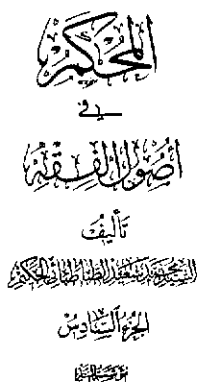 المحكم
في
أصول الفقه
تأليف
السيد محمد سعيد الطباطبائي الحكيم
الجزء السادس